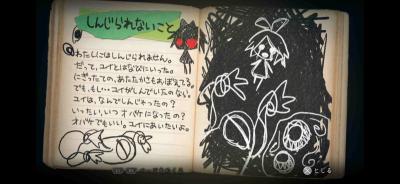 しんじられないこと
わたしにはしんじられません。
だって、ユイとはなびにいった。
にぎったての、あたたかさもおぼえてる。
でも、もし…ユイがしんでいたのなら。
ユイは、なんでしんじゃったの？
いったい、いつ オバケになったの？
オバケでもいい。ユイにあいたいよ。
とじる